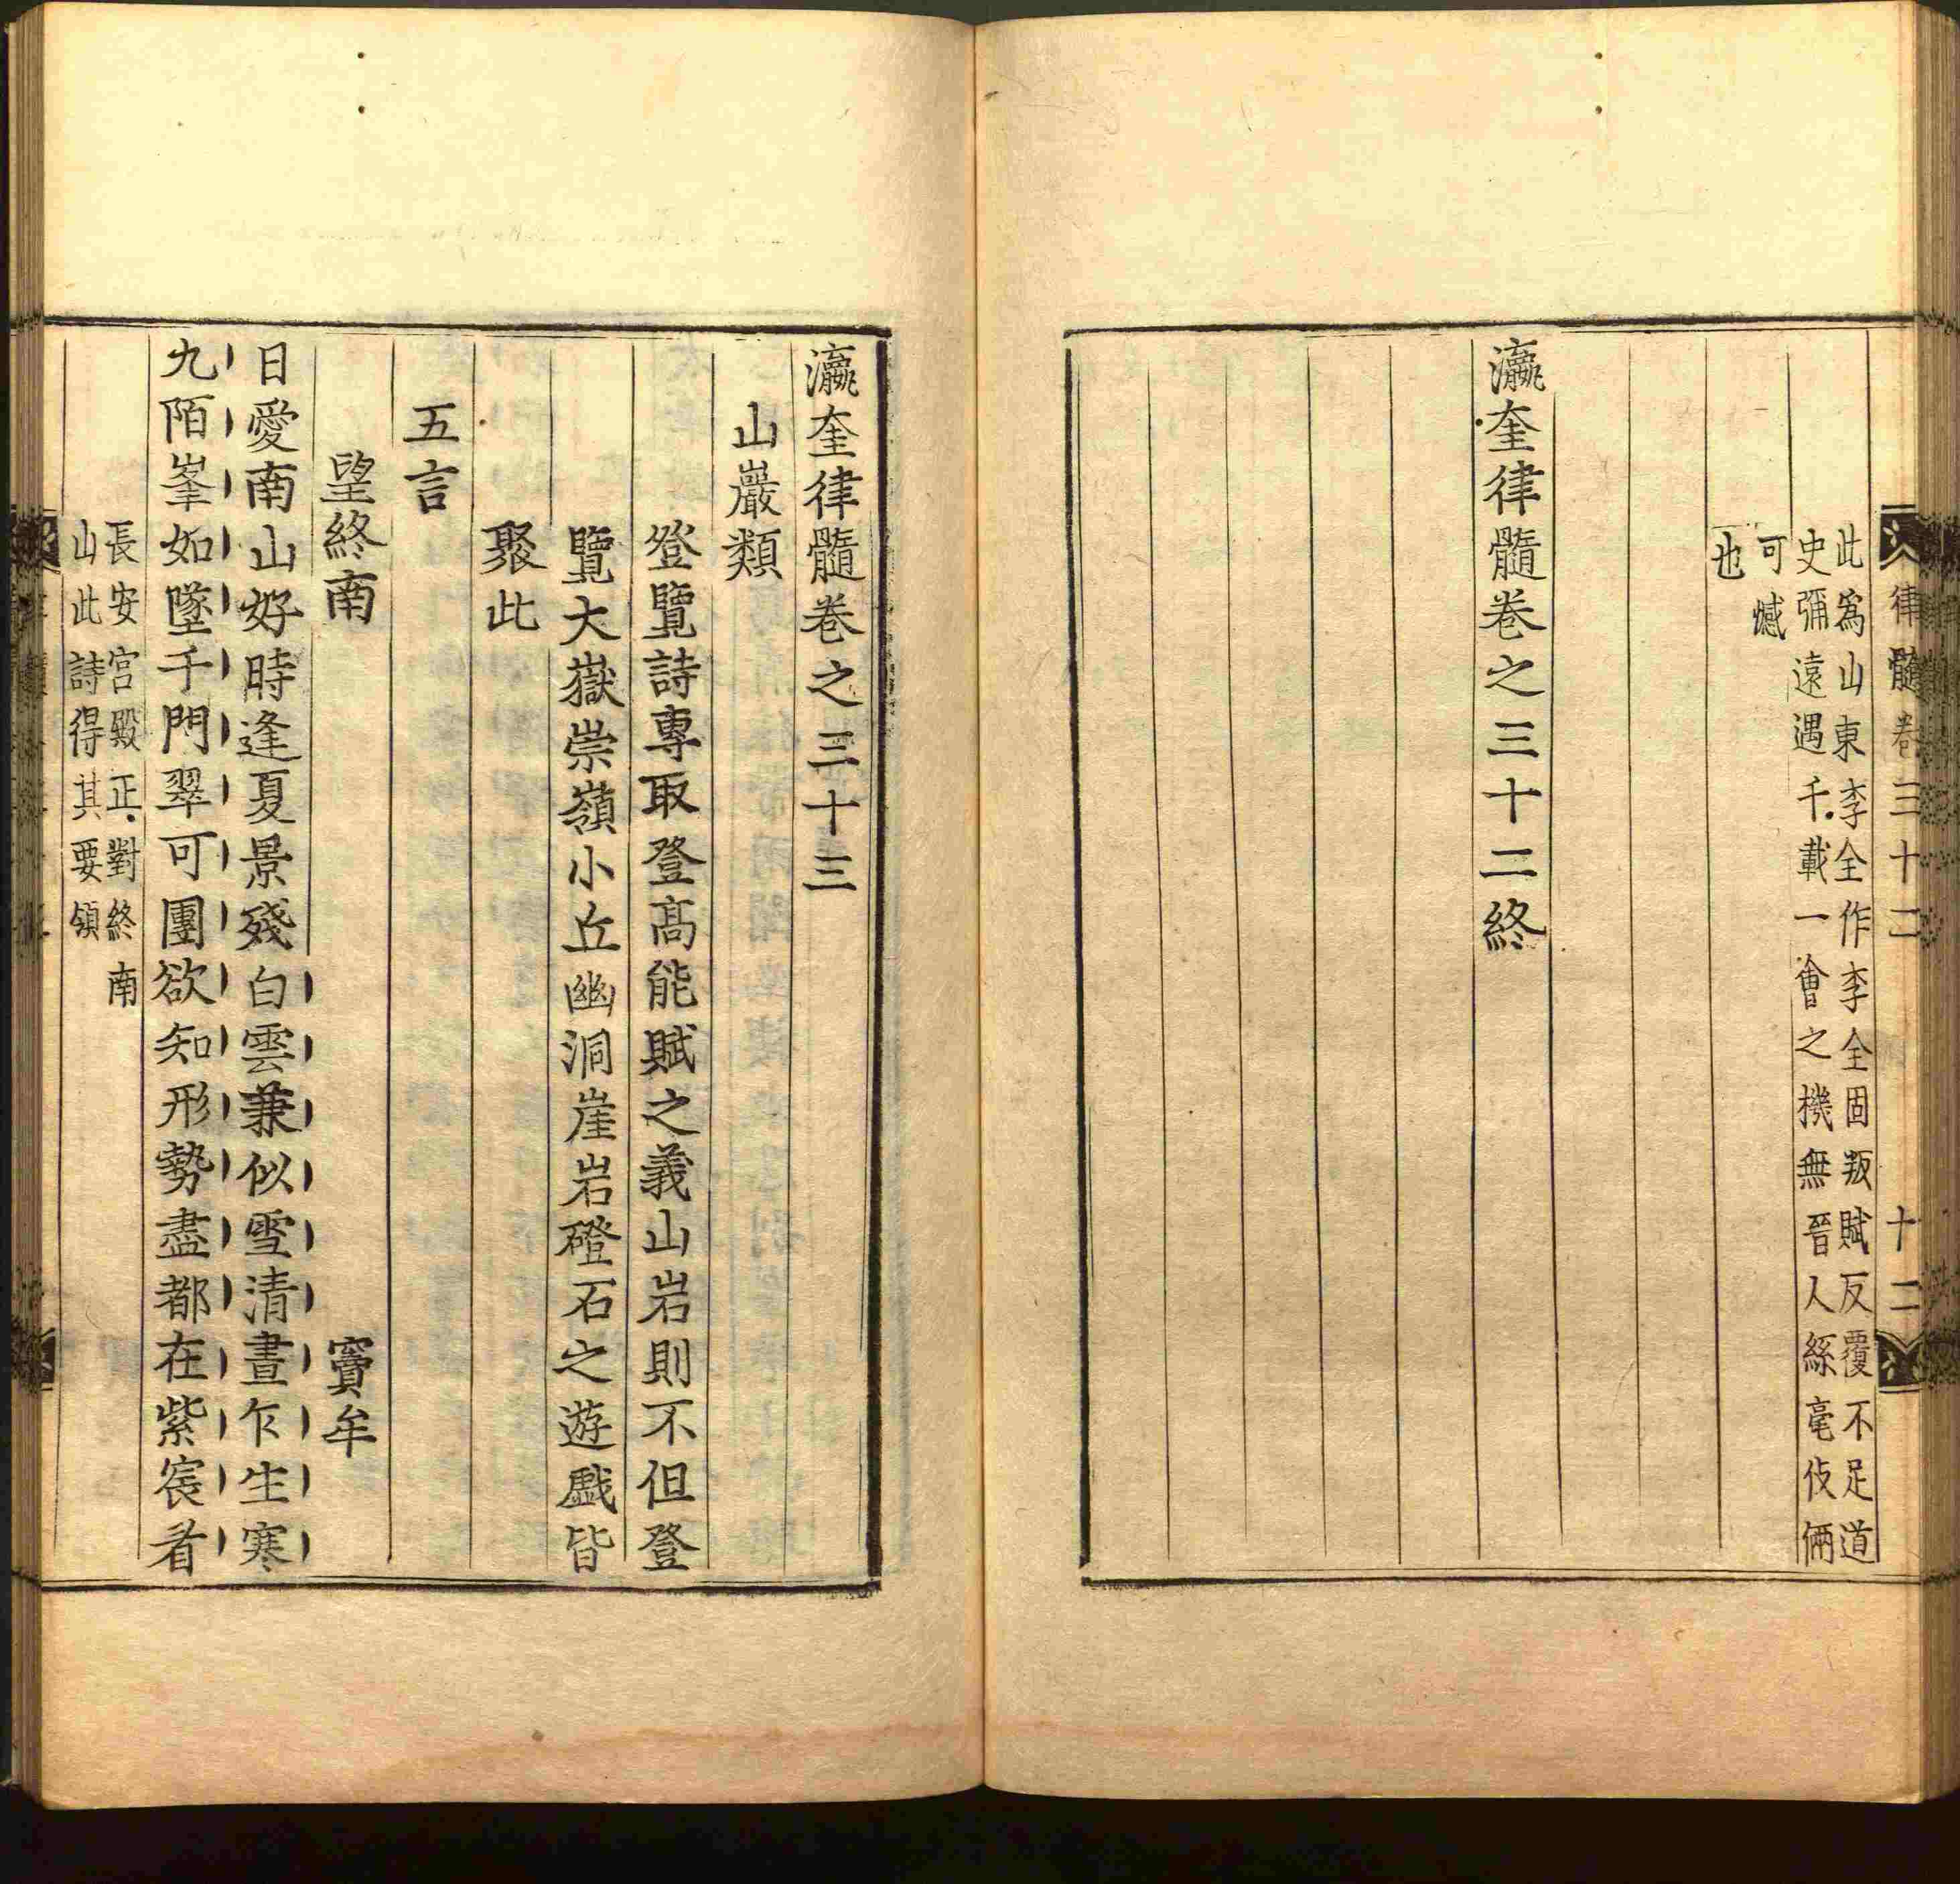 律髓卷三十二　十二
此爲山東李全作李全固叛賦反覆不足道
史彌遠遇千載一會之機無晉人絲毫伎倆
可憾
也
瀛奎律髓卷之三十二終
瀛奎律髓卷之三十三
山巖類
登覽詩專取登高能賦之義山岩則不但登
覽大嶽崇嶺小丘幽洞崖岩磴石之遊戲皆
聚此
五言
望終南　竇牟
日愛南山好時逢夏景殘白雲兼似雪清晝乍生寒
九陌峯如墜千門翠可團欲知形勢盡都在紫宸看
長安宮殿正對終南
山此詩得其要領